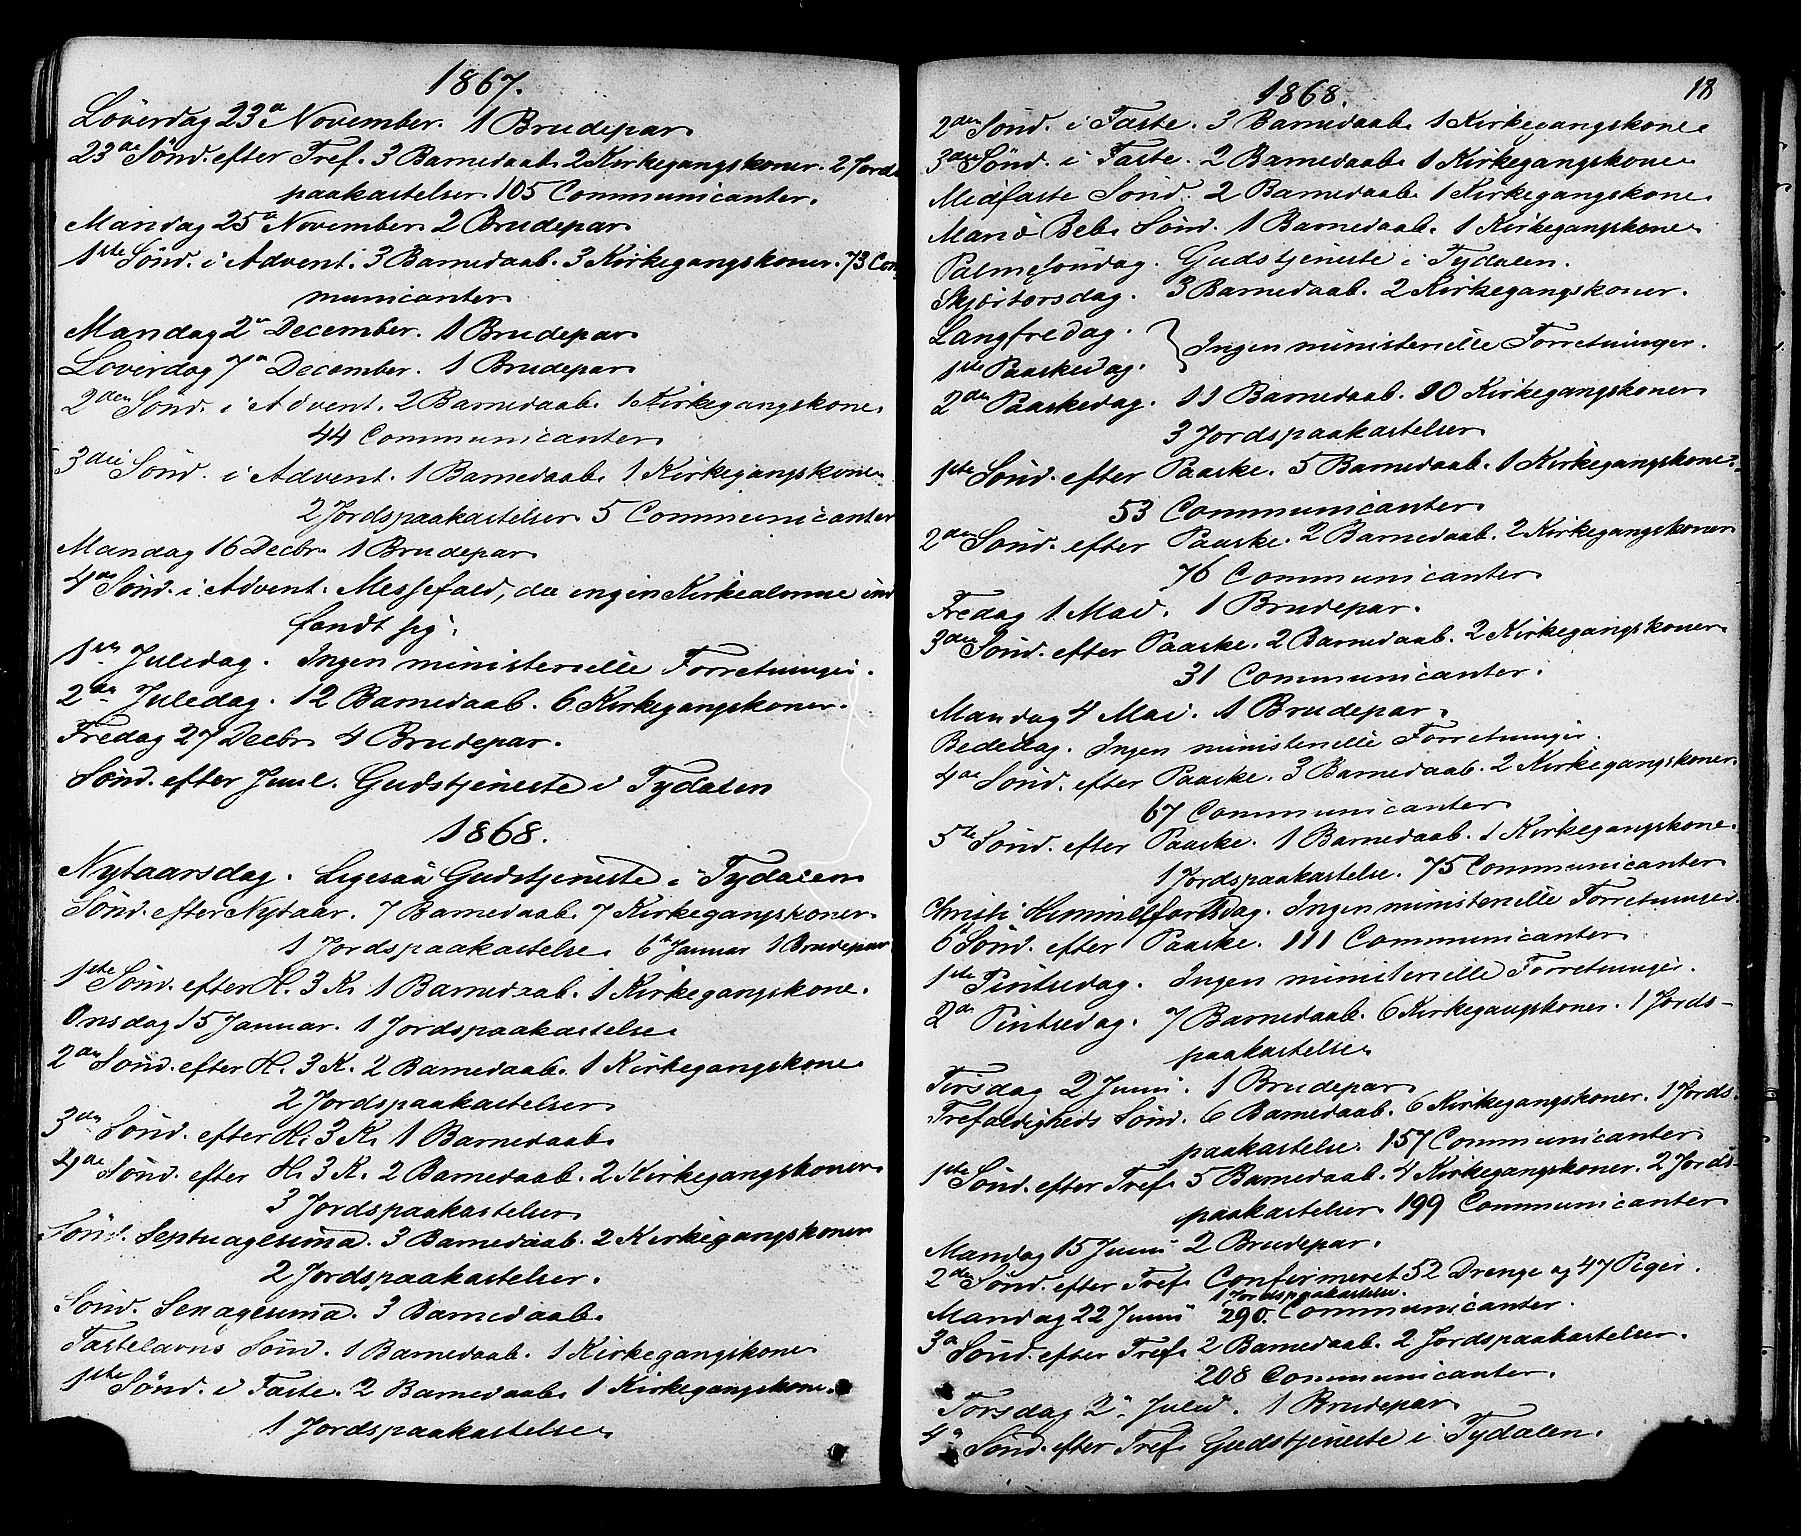 1867.
Löverdag 23de November. 1 Brudepar
23de Sönd. efter Tref. 3 Barnedaab. 2 Kirkegangskoner. 2 Jords
paakastelser. 105 Communicanter.
Mandag 25de November 2 Brudepar
1ste Sönd. i Advent. 3 Barnedaab. 3 Kirkegangskoner. 73 Com
municanter
Mandag 2de December. 1 Brudepar
Löverdag 7de December. 1 Brudepar
2den Sönd. i Advent. 2 Barnedaab. 1 Kirkegangskone
44 Communicanter
3die Sönd. i Advent. 1 Barnedaab 1 Kirkegangskone
2 Jordspaakastelser 5 Communicanter
Mandag 16 Decbr 1 Brudepar
4de Sönd. i Advent. Messefald, da ingen Kirkealmue ind
fandt sig.
1ste Juledag. Ingen ministerielle Forretninger.
2den Juledag. 12 Barnedaab. 6 Kirkegangskoner.
Fredag 27 Decbr 4 Brudepar.
Sönd. efter Juul. Gudstjeneste i Tydalen
1868.
Nytaarsdag. Ligesaa Gudstjeneste i Tydalen
Sönd. efter Nytaar. 7 Barnedaab. 7 Kirkegangskoner.
1 Jordspaakastelse. 6te Januar 1 Brudepar
1ste Sönd. efter H. 3 K. 1 Barnedaab. 1 Kirkegangskone.
Onsdag 15 Januar. 1 Jordspaakastelse
2den Sönd. efter H. 3 K. 2 Barnedaab. 1 Kirkegangskone
2 Jordspaakastelser
3die Sönd. efter H. 3 K. 1 Barnedaab
4de Sönd. efter H. 3 K. 2 Barnedaab. 2 Kirkegangskoner
3 Jordspaakastelser
Sönd. Septuagesima. 3 Barnedaab. 2 Kirkegangskoner
2 Jordspaakastelser.
Sönd. Sexagesima. 3 Barnedaab.
Fastelavns Sönd. 1 Barnedaab. 1 Kirkegangskone
1ste Sönd. i Faste. 2 Barnedaab 1 Kirkegangskone.
1 Jordspaakastelse
1868. 18
2den Sönd. i Faste. 3 Barnedaab 1 Kirkegangskone
3die Sönd. i Faste. 2 Barnedaab 1 Kirkegangskone
Midfaste Sönd. 2 Barnedaab 1 Kirkegangskone
Mariæ Beb. Sönd. 1 Barnedaab. 1 Kirkegangskone
Palmesöndag. Gudstjeneste i Tydalen.
Skjærtorsdag. 3 Barnedaab. 2 Kirkegangskoner.
Langfredag.
Ingen ministerielle Forretninger.
1ste Paaskedag.
2den Paaskedag. 11 Barnedaab. 10 Kirkegangskoner
3 Jordspaakastelser
1ste Sönd. efter Paaske. 5 Barnedaab. 1 Kirkegangskone.
53 Communicanter
2den Sönd. efter Paaske. 2 Barnedaab. 2 Kirkegangskoner
76 Communicanter
Fredag 1 Mai. 1 Brudepar.
3die Sönd. efter Paaske. 2 Barnedaab. 2 Kirkegangskoner
31 Communicanter.
Mandag 4 Mai. 1 Brudepar
Bededag. Ingen ministerielle Forretninger.
4de Sönd. efter Paaske. 3 Barnedaab. 2 Kirkegangskoner
67 Communicanter
5te Sönd. efter Paaske. 1 Barnedaab. 1 Kirkegangskone.
1 Jordspaakastelse. 75 Communicanter
Christi Himmelfartsdag. Ingen ministerielle Forretninger.
6te Sönd. efter Paaske. 111 Communicanter
1ste Pintsedag. Ingen ministerielle Forretninger.
2den Pintsedag. 7 Barnedaab. 6 Kirkegangskoner. 1 Jords-
paakastelse
Tirsdag 2 Juni. 1 Brudepar
Trefaldigheds Sönd. 6 Barnedaab. 6 Kirkegangskoner. 1 Jords-
paakastelse. 157 Communicanter
1ste Sönd. efter Tref. 5 Barnedaab. 4 Kirkegangskoner. 2 Jords-
paakastelser 199 Communicanter
Mandag 15 Juni 2 Brudepar.
2den Sönd. efter Tref. Confirmeret 52 Drenge og 47 Piger.
1 Jordspaakastelse.
Mandag 22 Juni 290. Communicanter.
3die Sönd. efter Tref. 2 Barnedaab. 2 Jordspaakastelser.
208 Communicanter.
Torsdag 2de Juli. 1 Brudepar
4de Sönd. efter Tref. Gudstjeneste i Tydalen.